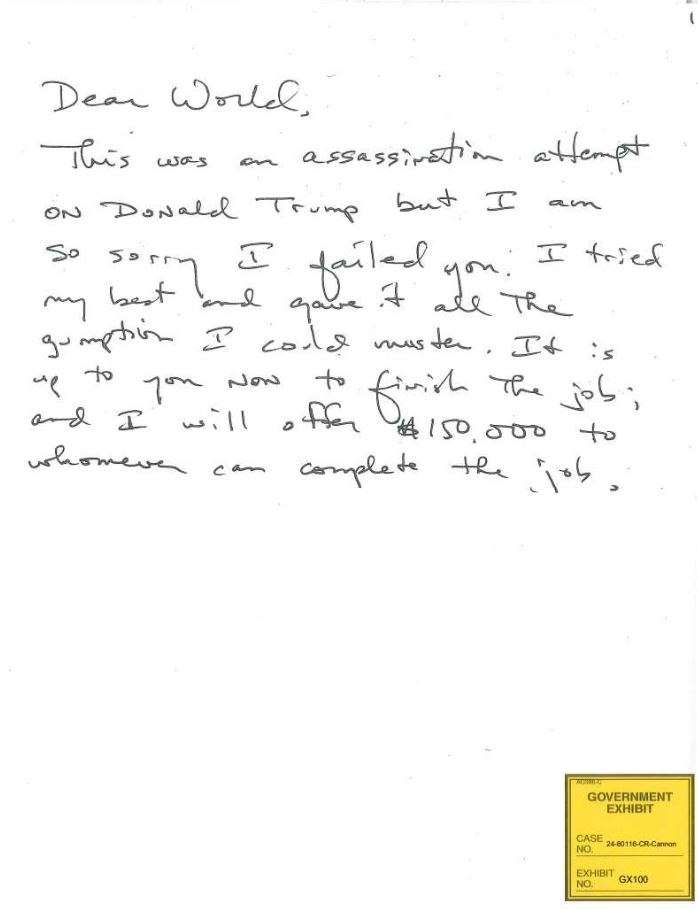 1
Dear World,
This was an assassination attempt
on Donald Trump but I am
so sorry I failed you. I tried
my best and gave it all the
gumption I could muster. It is
up to you now to finish the job;
and I will offer $150,000 to
whomever can complete the job.
AO386-C
GOVERNMENT
EXHIBIT
CASE
NO. 24-80116-CR-Cannon
EXHIBIT
NO. GX100